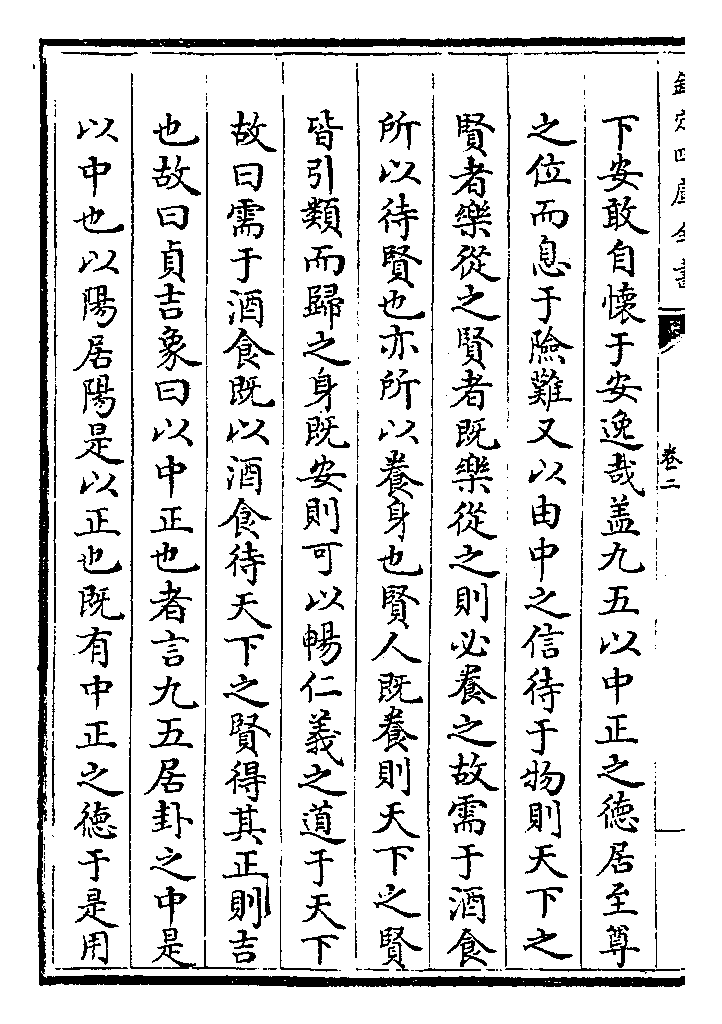 欽定四庫全書
卷二
下安敢自懐于安逸哉盖九五以中正之徳居至尊
之位而息于險難又以由中之信待于物則天下之
賢者樂從之賢者既樂從之則必養之故需于酒食
所以待賢也亦所以養身也賢人既養則天下之賢
皆引類而歸之身既安則可以暢仁義之道于天下
故曰需于酒食既以酒食待天下之賢得其正則吉
也故曰貞吉象曰以中正也者言九五居卦之中是
以中也以陽居陽是以正也既有中正之徳于是用